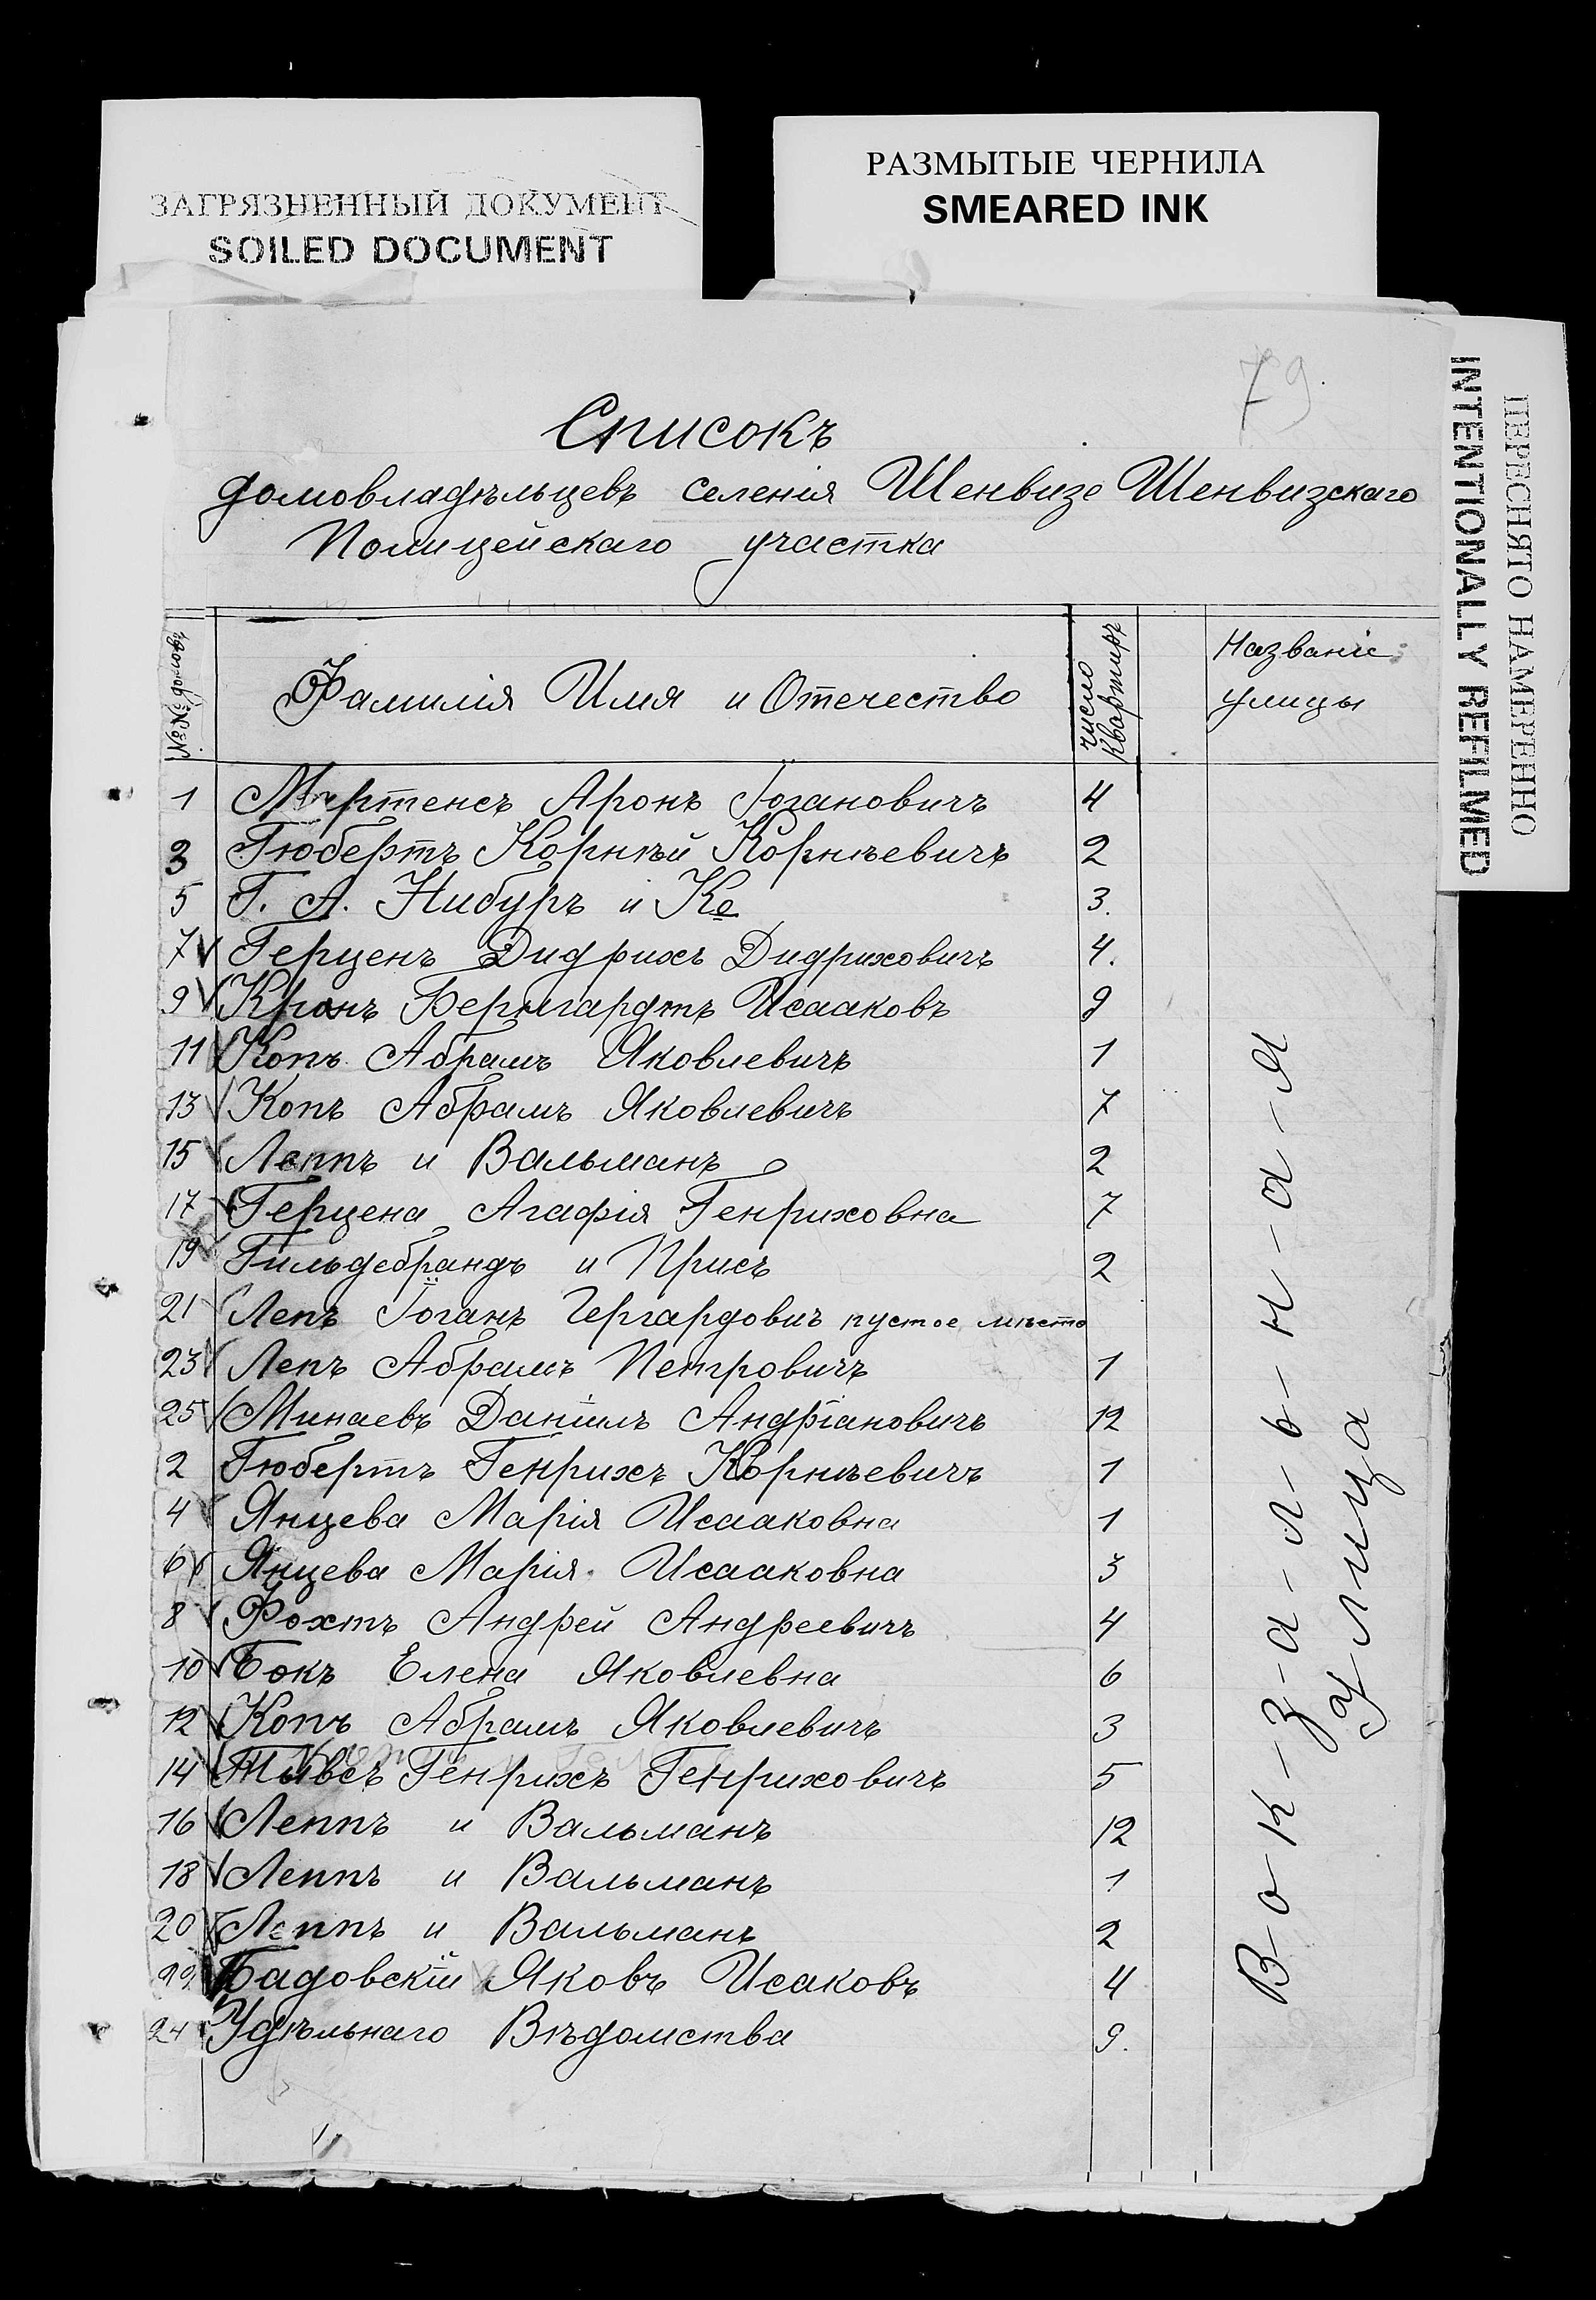 ЗАГРЯЗНЕННЫЙ ДОКУМЕНТ
SOILED DOCUMENT
РАЗМЫТЫЕ ЧЕРНИЛА
SMEARED INK
ПЕРЕСНЯТО НАМЕРЕННО
INTENTIONALLY REFILMED
79.
Списокъ
домовладѣльцевъ селенія Шенвизе Шенвизскаго
Полицейскаго участка
№№ домовъ
Фамилія Имя и Отечество
число квартиръ
Названіе
улицы
1 Мертенсъ Аронъ Іогановичъ 4
3 Гюбертъ Корнѣй Корнѣевичъ 2
5 Г. А. Нибуръ и Ко 3.
7 Герценъ Дидрихъ Дидриховичъ 4.
9 Кронъ Бернгардтъ Исааковъ 9
11 Копъ Абрамъ Яковлевичъ 1
13 Копъ Абрамъ Яковлевичъ 7
15 Леппъ и Вальманъ 2
17 Герцена Агафія Генриховна 7
19 Гильдебрандъ и Присъ 2
21 Лепъ Іоганъ Гергардовичъ пустое мѣсто
23 Лепъ Абрамъ Петровичъ 1
25 Минаевъ Даніилъ Андріановичъ 12
2 Гюбертъ Генрихъ Корнѣевичъ 1
4 Янцева Марія Исааковна 1
6 Янцева Марія Исааковна 3
8 Фохтъ Андрей Андреевичъ 4
10 Бокъ Елена Яковлевна 6
12 Копъ Абрамъ Яковлевичъ 3
14 Генрихъ Генриховичъ 5
16 Леппъ и Вальманъ 12
18 Леппъ и Вальманъ 1
20 Леппъ и Вальманъ 2
22 Бадовскій Яковъ Исаковъ 4
24 Удѣльнаго Вѣдомства 9.
В-о-к-з-а-л-ь-н-а-я
Улица